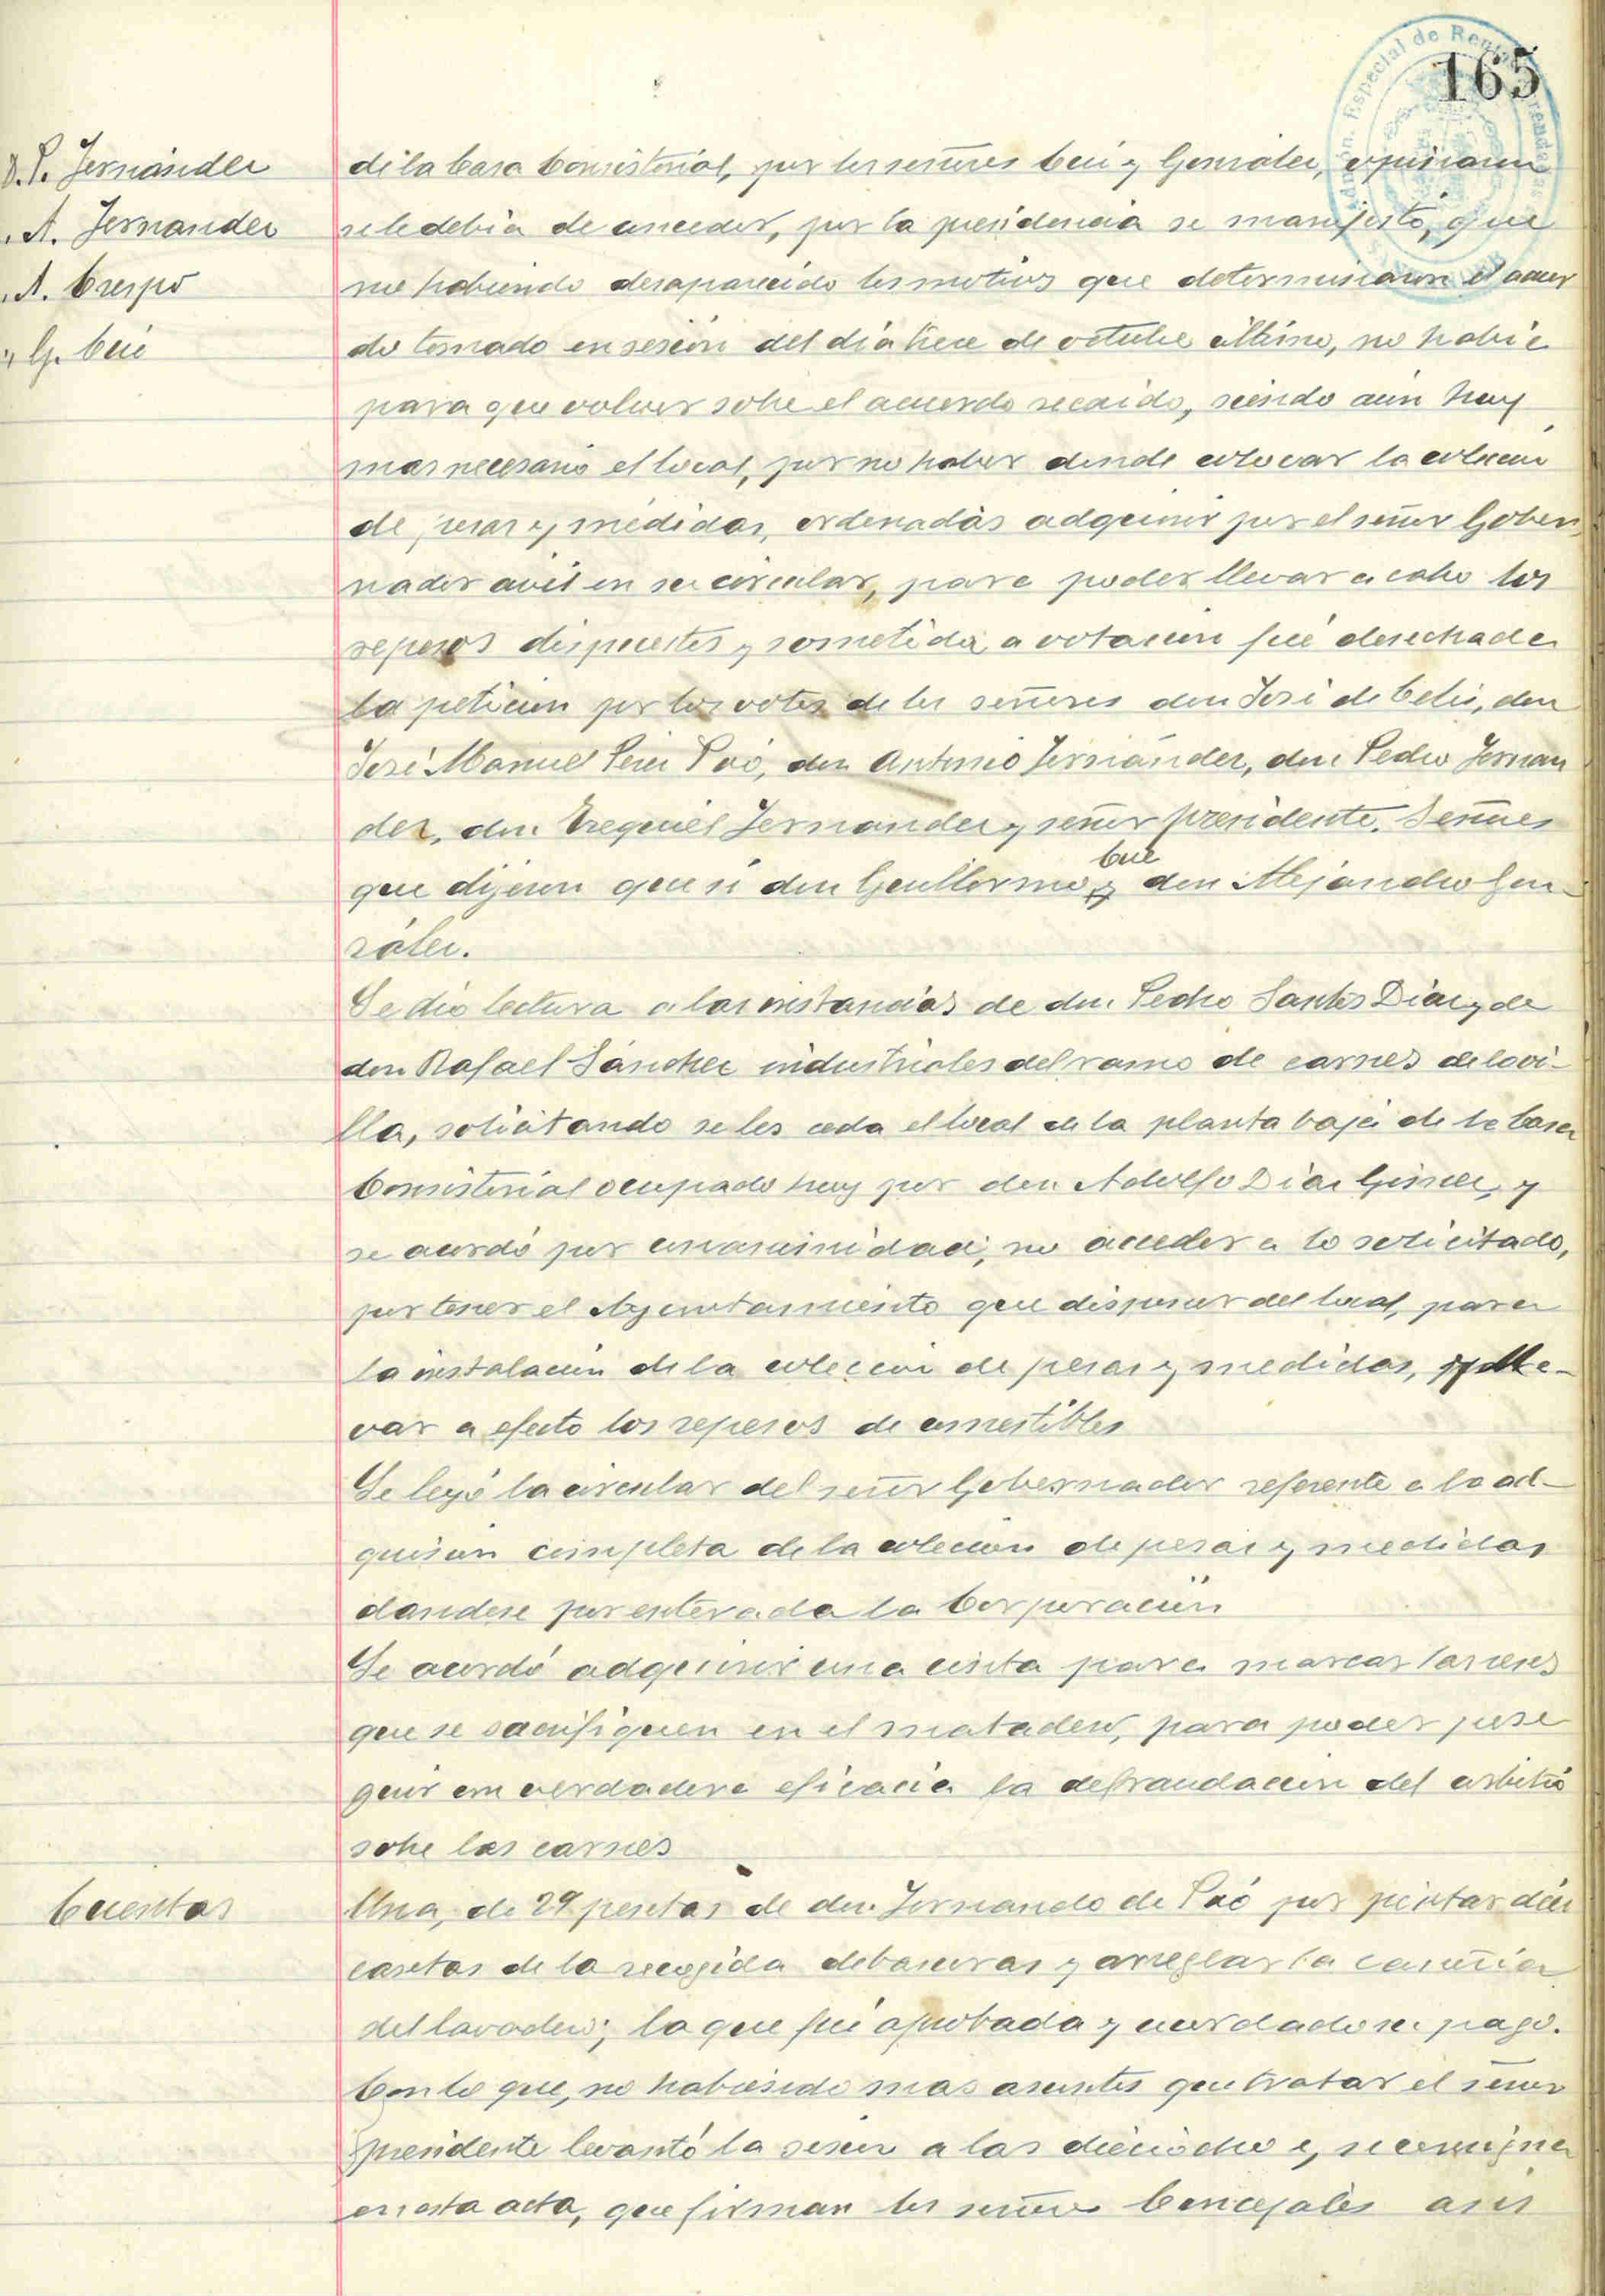 165
D. P. Fernández
" A. Fernandez
" A. Crespo
" G. Cué
de la Casa Consistorial, por los señores Cué y González, opinaron
se le debia de acceder, por la presidencia se manifestó, que
no habiendo desaparecido los motivos que determinaron el acuer
do tomado en sesión del día trece de octubre último, no habia
para que volver sobre el acuerdo recaido, siendo aún hoy
mas necesario el local, por no haber donde colocar la coleccion
de pesas y medidas, ordenadas adquirir por el señor Gober
nador civil en su circular, para poder llevar a cabo los
repesos dispuestos y sometida a votacion fué desechada
la peticion por los votos de los señores don José de Celis, don
José Manuel Pérez Poó, don Antonio Fernández, don Pedro Fernan
dez, don Ezequiel Fernandez y señor presidente. Señores
que dijeron que si don Guillermo Cué y don Alejandro Gon-
zález.
Se dio lectura a las instancias de don Pedro Santos Diaz y de
don Rafael Sánchez industriales del ramo de carnes de la vi-
lla, solicitando se les ceda el local de la planta baja de la Casa
Consistorial ocupado hoy por don Adolfo Diaz y
se acordó por unanimidad, no acceder a lo solicitado,
por tener el Ayuntamiento que disponer del local, para
la instalacion de la coleccion de pesas y medidas, y lle-
var a efecto los repesos de comestibles
Se leyó la circular del señor Gobernador referente a la ad-
quision completa de la coleccion de pesas y medidas
dandose por enterada la Corporación
Se acordó adquirir una cinta para marcar las reses
que se sacrifiquen en el matadero, para poder perse
guir con verdadera eficacia la defraudacion del arbitrio
sobre las carnes
Cuentas
Una, de 29 pesetas de don Fernando de Poó por pintar diez
casetas de la recogida de basuras y arreglar la cañería
del lavadero; la que fué aprobada y acordado su pago.
Con lo que, no habiendo mas asuntos que tratar el señor
presidente levantó la sesion a las dieciocho y, se consigna
en esta acta, que firman los señores Concejales asis